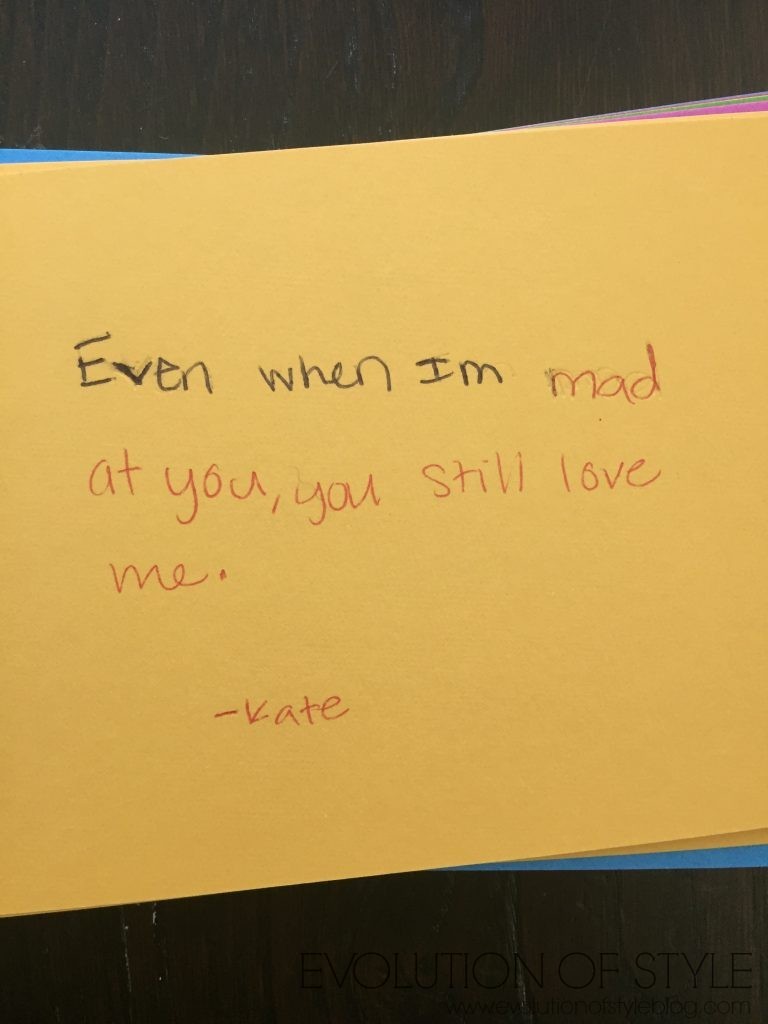 Even when Im mad
at you, you still love
me.
-Kate
EVOLUTION OF STYLE
www.evolutionofstyleblog.com